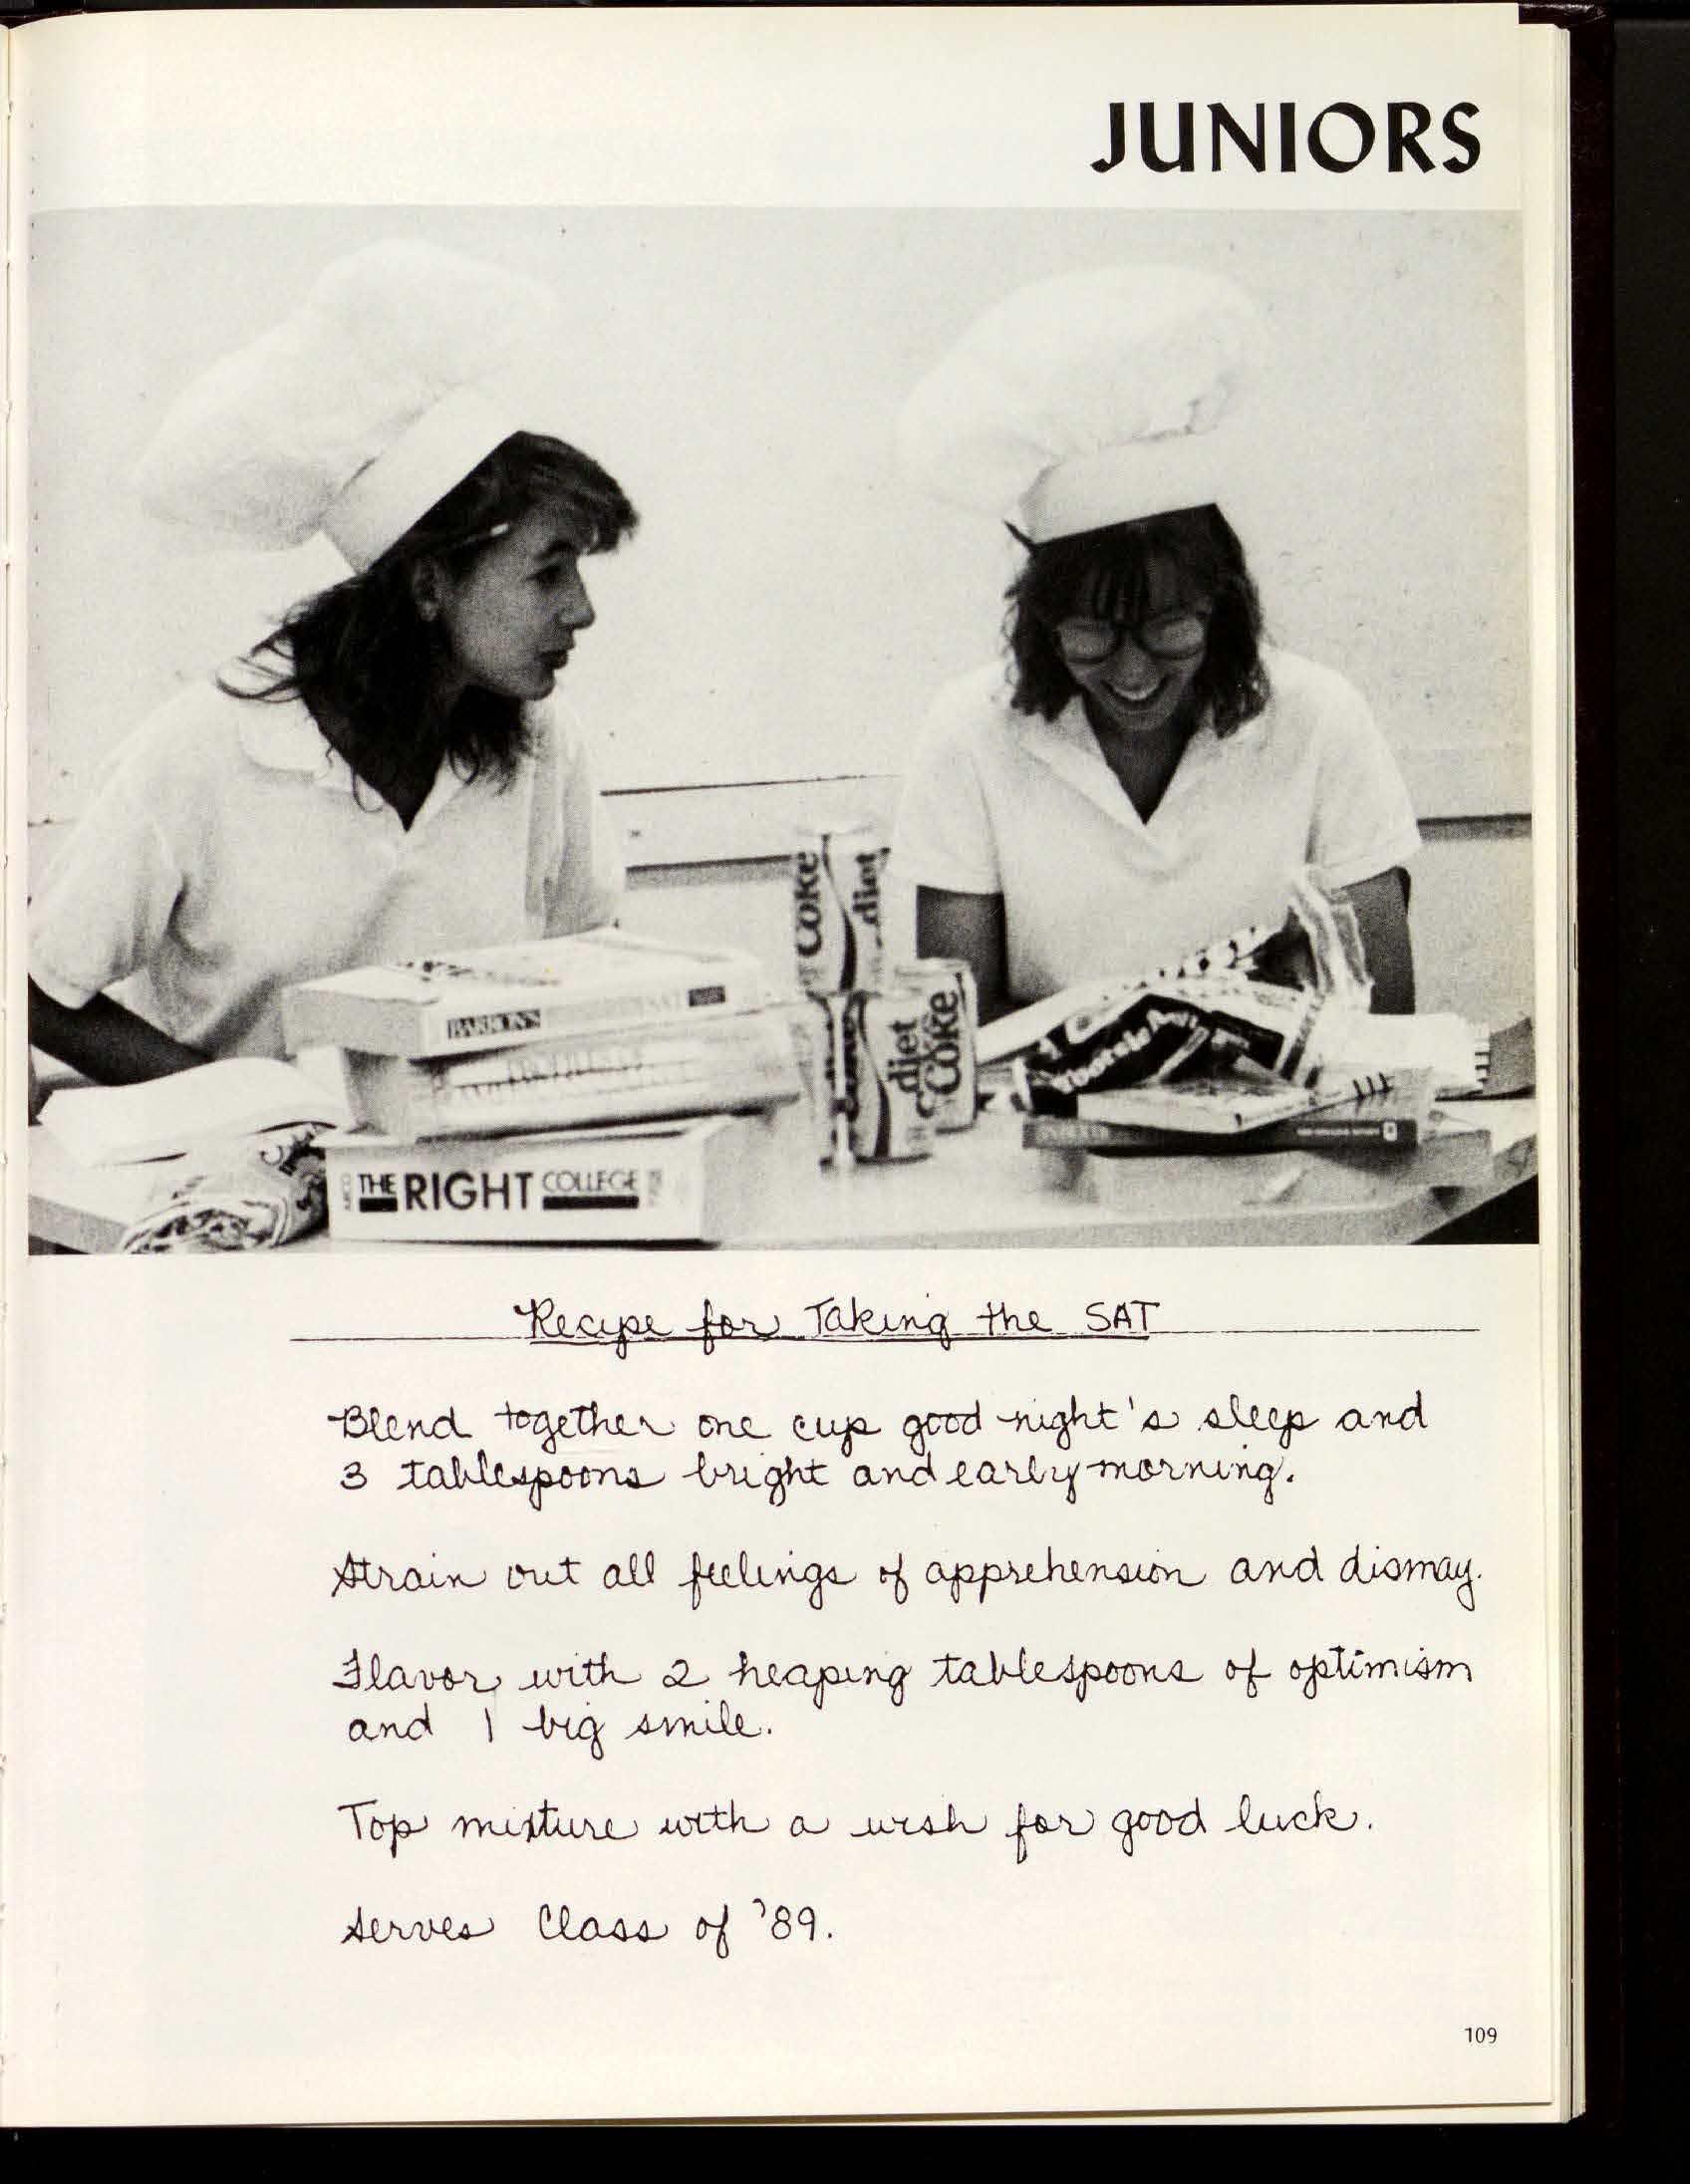 JUNIORS
Coke
diet
BARRON'S
SAT
diet
Coke
Tootsie
THE RIGHT COLLEGE
Recipe for Taking the SAT
Blend together one cup good night's sleep and
3 tablespoons bright and early morning.
Strain out all feelings of apprehension and dismay.
Flavor with 2 heaping tablespoons of optimism
and 1 big smile.
Top mixture with a wish for good luck.
Serves Class of '89.
109